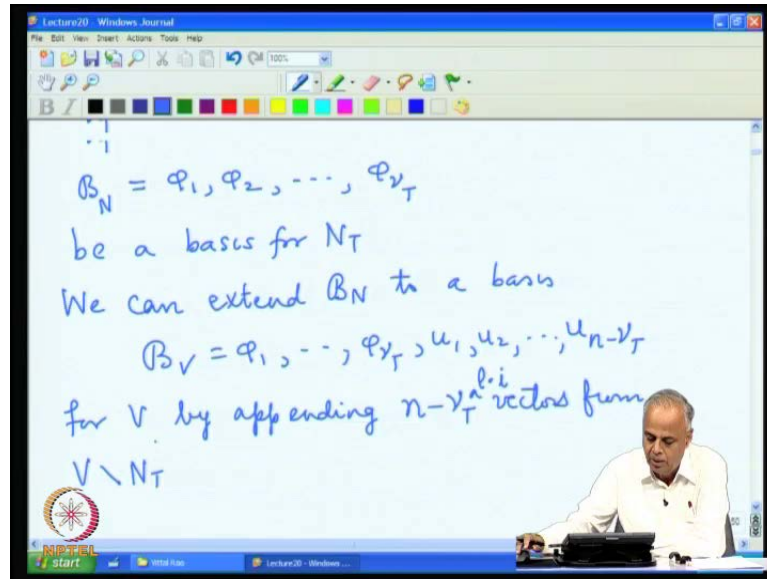 Lecture20 - Windows Journal
File Edit View Insert Actions Tools Help
100%
B I
B_N = φ₁, φ₂, ---, φ_{ν_T}
be a basis for N_T
We can extend B_N to a basis
B_V = φ₁, --, φ_{ν_T}, u₁, u₂, ..., u_{n-ν_T}
for V by appending n-ν_T l.i vectors from
V \ N_T
50
NPTEL
start Vittal Rao Lecture20 - Windows ...